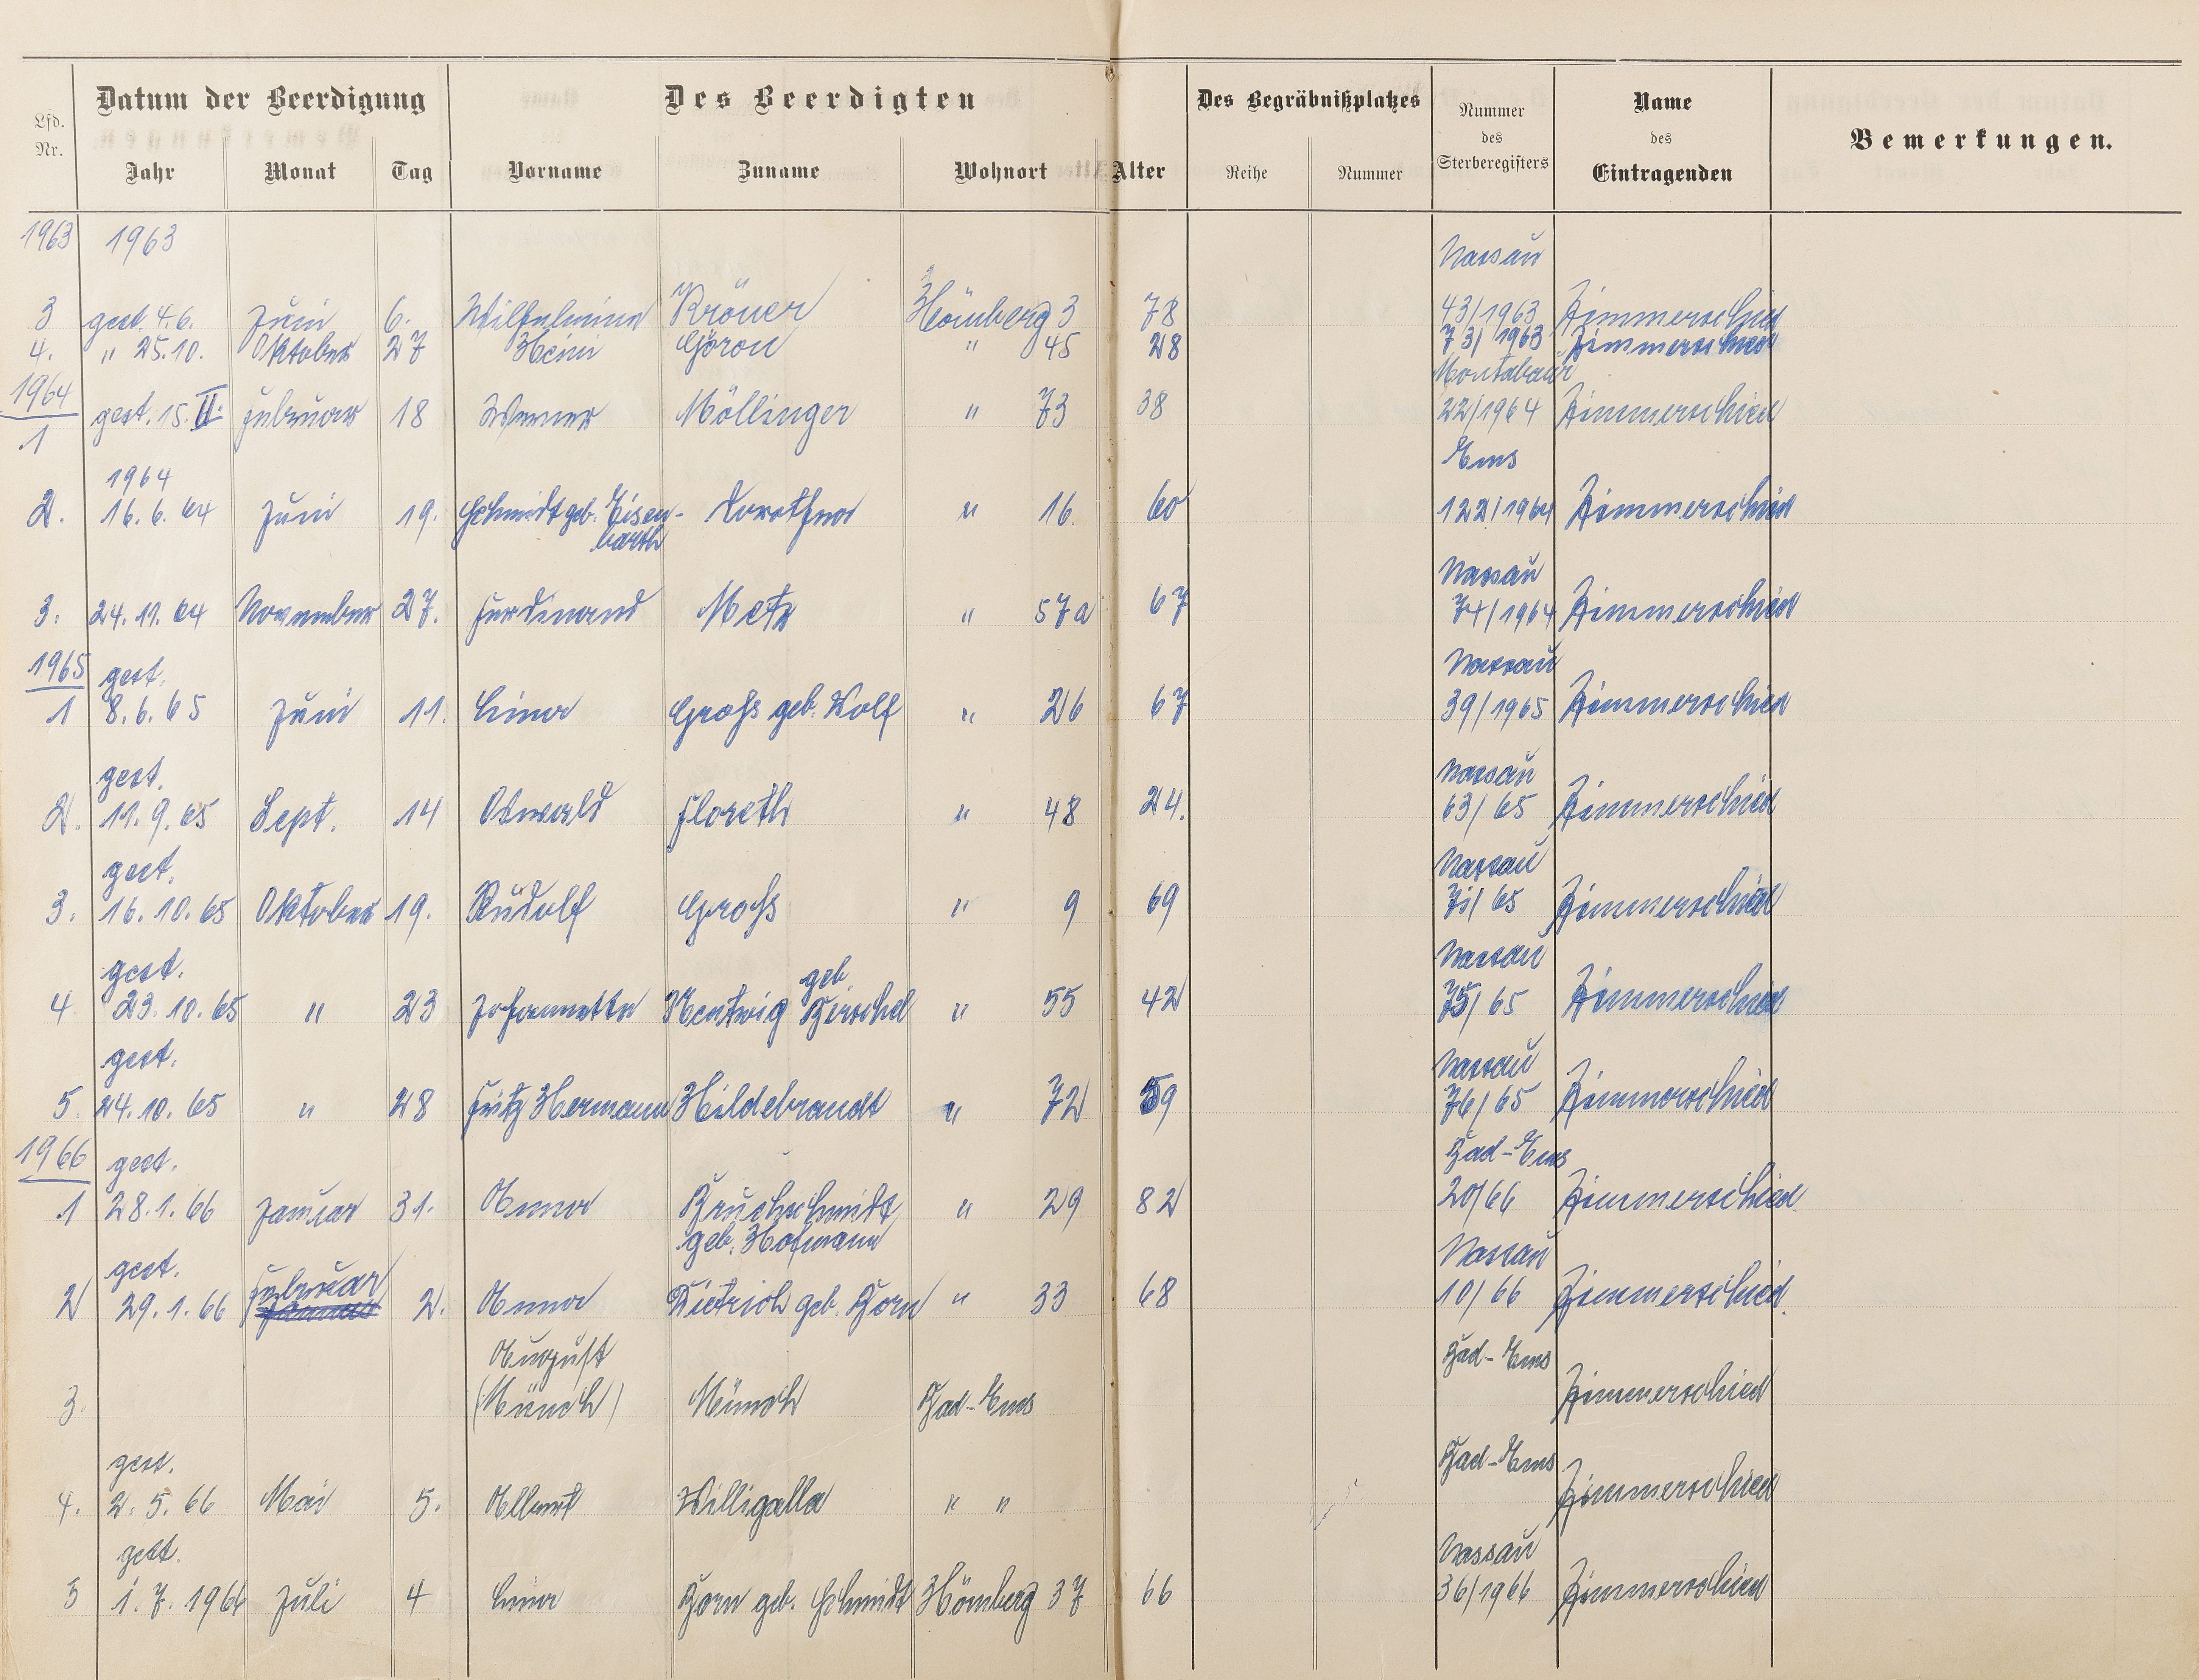 Datum der Beerdigung Des Beerdigten Des Begräbnißplatzes Nummer des Sterberegisters Name des Eintragenden Bemerkungen.
Lfd. Nr. Jahr Monat Tag Vorname Zuname Wohnort Alter Reihe Nummer
1963 1963 Nassau
3 gest. 4.6. Juni 6. Wilhelmine Kröner Hömberg 3 78 43/1963 Zimmerschied
4. " 25.10. Oktober 27 Heini Göron " 45 28 73/1963 Zimmerschied
1964 Montabaur
1 gest. 15. II. Februar 18 Werner Möllinger " 73 38 22/1964 Zimmerschied
1964 Ems
2. 16.6.64 Juni 19. Schmidt geb. Eisen- Dorothea " 16. 60 122/1964 Zimmerschied
barth
Nassau
3. 24.11.64 November 27. Ferdinand Metz " 57a 67 74/1964 Zimmerschied
1965 gest. Nassau
1 8.6.65 Juni 11. Lina Groß geb. Wolf " 26 67 39/1965 Zimmerschied
gest. Nassau
2. 11.9.65 Sept. 14 Oswald Floreth " 48 24. 63/65 Zimmerschied
gest. Nassau
3. 16.10.65 Oktober 19. Rudolf Groß " 9 69 71/65 Zimmerschied
gest. geb. Nassau
4 23.10.65 " 23 Johannette Hentwig " 55 42 75/65 Zimmerschied
gest. Nassau
5. 24.10.65 " 28 Fritz Hermann Hildebrandt " 72 59 76/65 Zimmerschied
1966 gest. Bad-Ems
1 28.1.66 Januar 31. Anna Bruchschmidt " 29 82 20/66 Zimmerschied
geb. Hofmann
gest. Februar Nassau
2 29.1.66 Januar 2. Anna Dietrich geb. Born " 33 68 10/66 Zimmerschied.
August Bad-Ems
3. (Münch) Münch Bad-Ems Zimmerschied
gest. Bad-Ems
4. 2.5.66 Mai 5. Albert Willigalla " " Zimmerschied
gest. Nassau
5 1.7.1966 Juli 4 Lina Born geb. Schmidt Hömberg 37 66 36/1966 Zimmerschied